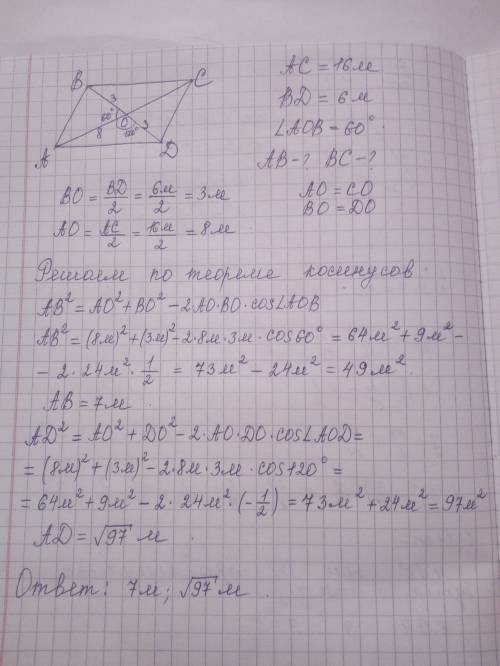 B
C
3
60°
O
3
8
120°
A
D
AC = 16м
BD = 6м
∠AOB = 60°
AB-? BC-?
AO = CO
BO = DO
BO = BD/2 = 6м/2 = 3м
AO = AC/2 = 16м/2 = 8м
Решаем по теореме косинусов
AB² = AO² + BO² - 2AO·BO·cos∠AOB
AB² = (8м)² + (3м)² - 2·8м·3м·cos60° = 64м² + 9м² -
- 2·24м²·1/2 = 73м² - 24м² = 49м².
AB = 7м.
AD² = AO² + DO² - 2·AO·DO·cos∠AOD =
= (8м)² + (3м)² - 2·8м·3м·cos120° =
= 64м² + 9м² - 2·24м²·(-1/2) = 73м² + 24м² = 97м²
AD = √97 м.
Ответ: 7м; √97 м.